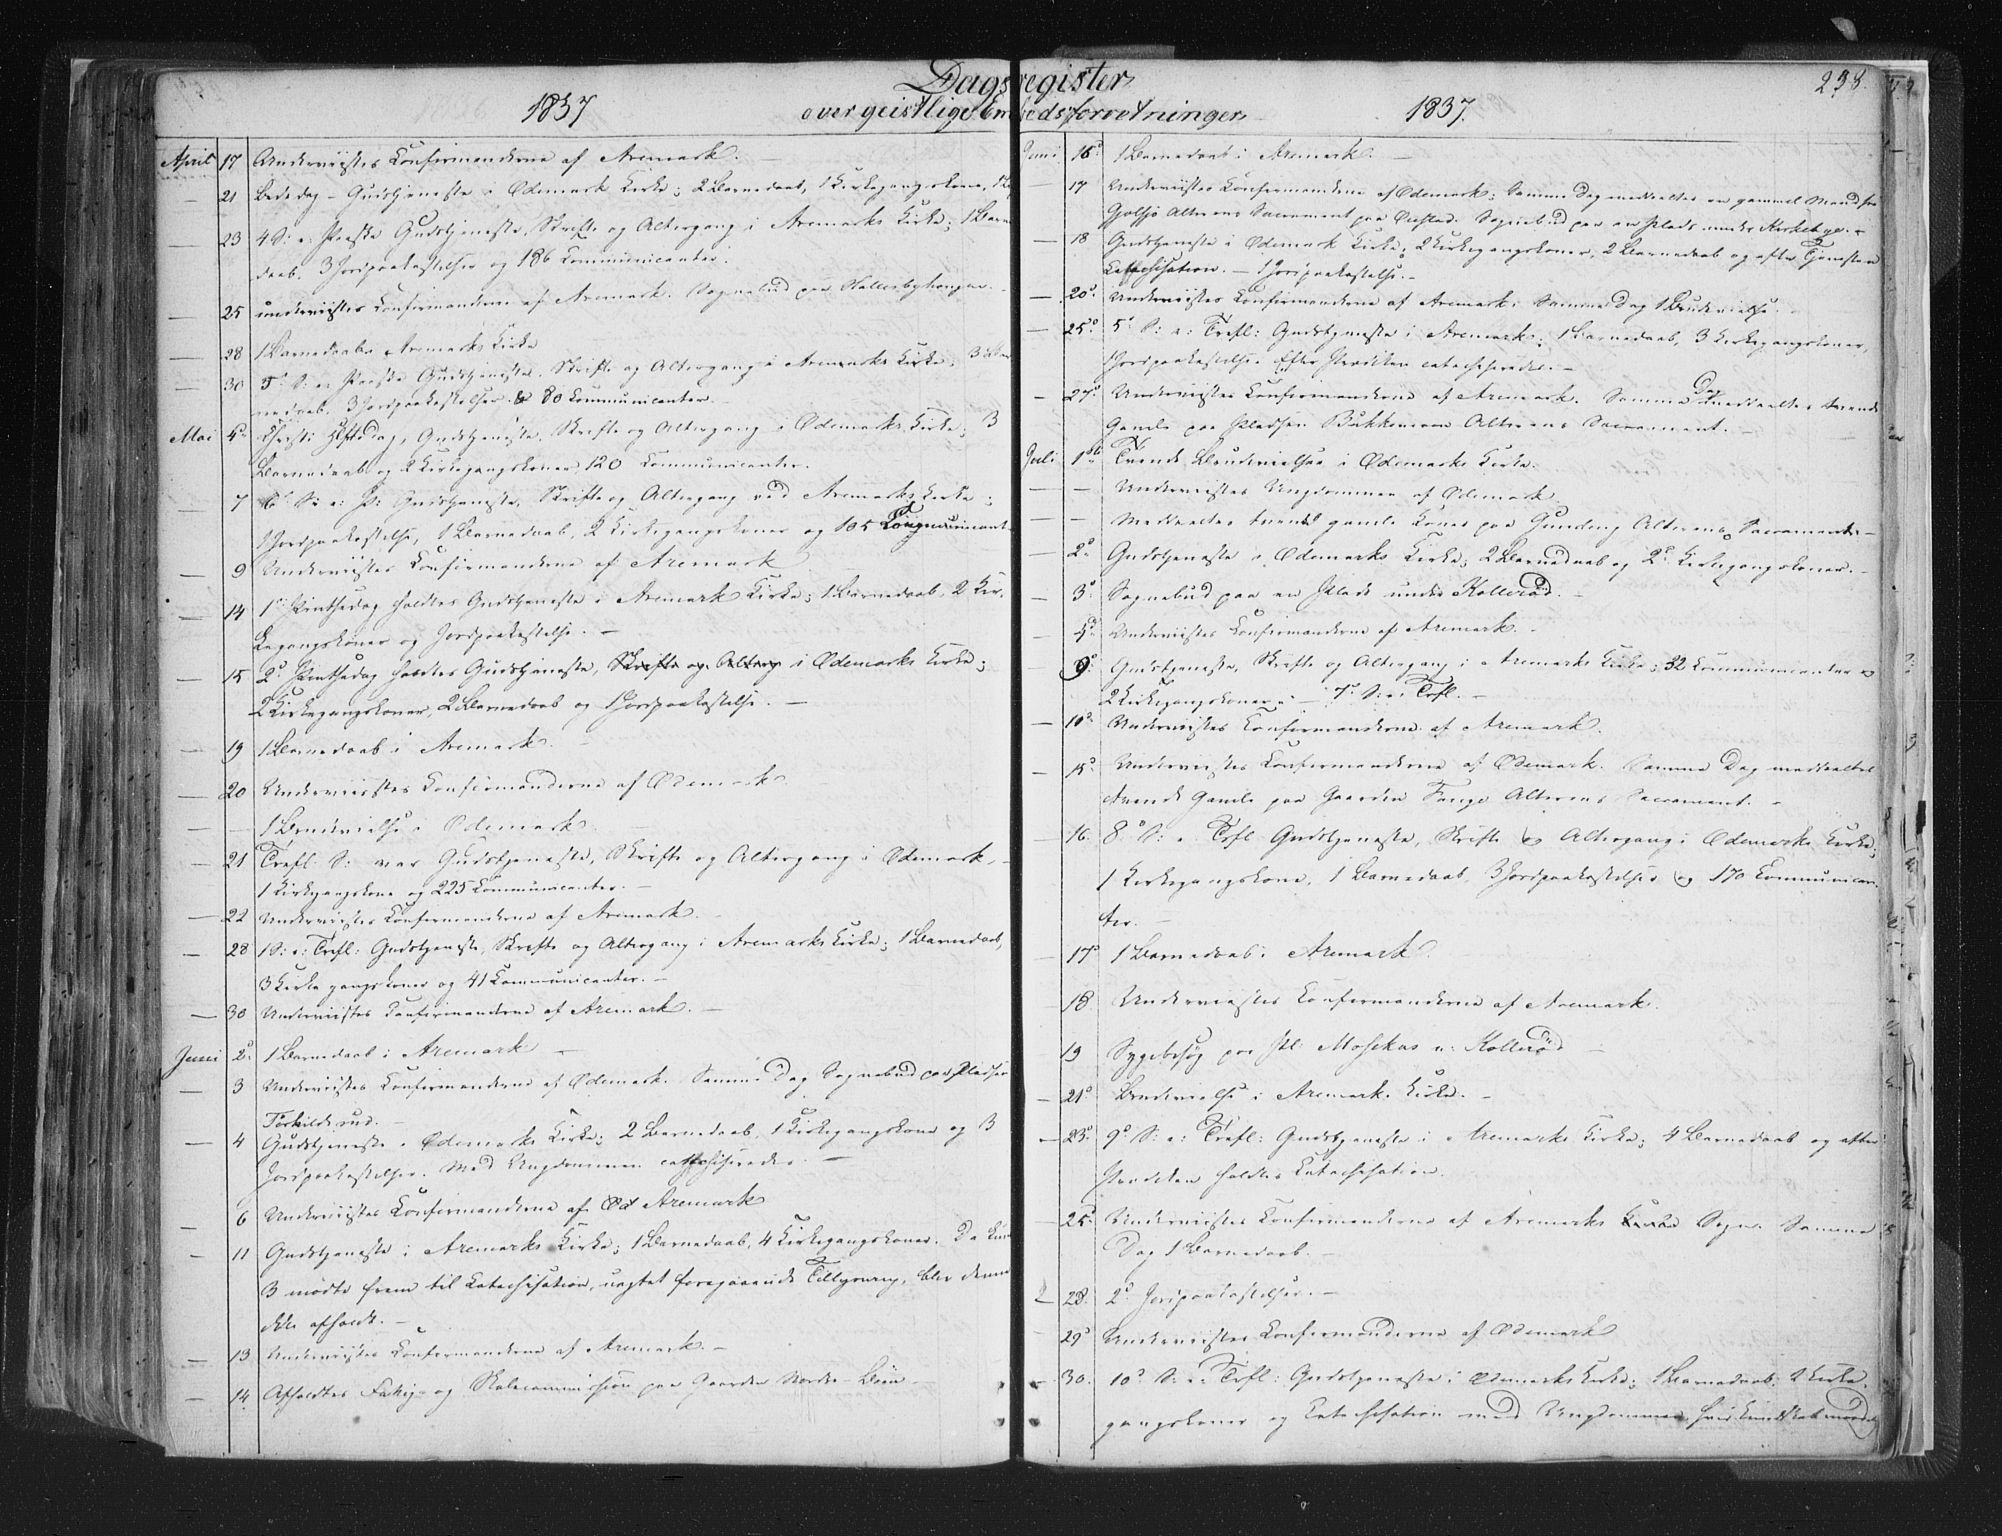 Dagsregister
238.
1837 over geistlige Embedsforretninger 1837.
April 17 Underviistes Confirmanderne af Aremark.
21 Bededag - Gudstjeneste i Ødemark Kirke; 2 Barnedaab, 1 Kirkegangskone,
23 4 S: e: Paaske Gudstjeneste, Skrifte og Altergang i Aremarks Kirke; 1 Barne
daab. 3 Jordpaakastelser og 186 Communicanter.
25 underviistes Confirmanderne af Aremark. Sognebud paa
28 1 Barnedaab i Aremarks Kirke
30 5te S: e: Paaske Gudstjeneste, Skrifte og Altergang i Aremarks Kirke; 3 Bar
nedaab. 3 Jordpaakastelser & 80 Communicanter.
Mai 4de Christi Hf:dag, Gudstjeneste, Skrifte og Altergang i Ødemarks Kirke; 3
Barnedaab og 2 Kirkegangskoner 120 Communicanter.
7 6te S: e: P: Gudstjeneste, Skrifte og Altergang ved Aremarks Kirke;
1 Jordpaakastelse, 1 Barnedaab, 2 Kirkegangskoner og 105 Communicant
9 Underviistes Confirmanderne af Aremark
14 1ste Pintsedag holdtes Gudstjeneste i Aremark Kirke; 1 Barnedaab, 2 Kir-
kegangskoner og Jordpaakastelse. -
15 2d Pintsedag holdtes Gudstjeneste, Skrifte og Alterg i Ødemarks Kirke;
2 Kirkegangskoner, 2 Barnedaab og 1 Jordpaakastelse. -
19 1 Barnedaab i Aremark.
20 Underviistes Confirmanderne af Ødemark
1 Brudevielse i Ødemark.
21 Trefl: S: var Gudstjeneste, Skrifte og Altergang i Ødemark,
1 Kirkegangskone og 225 Communicanter. -
22 Underviistes Confirmanderne af Aremark.
28 1 S: e: Trefl: Gudstjeneste, Skrifte og Altergang i Aremarks Kirke; 1 Barnedaab,
3 Kirkegangskoner og 41 Communicanter. -
30 Underviistes Confirmanderne af Aremark. -
Juni 2d 1 Barnedaab i Aremark -
3 Underviistes Confirmanderne af Ødemark. Samme Dag Sognebud paa Pladsen
Torkildsrud. -
4 Gudstjeneste i Ødemarks Kirke; 2 Barnedaab, 1 Kirkegangskone og 3
Jordpaakastelser. Med Ungdommen catechiseredes. -
6 Underviistes Confirmanderne af Ød Aremark
11 Gudstjeneste i Aremarks Kirke; 1 Barnedaab, 4 Kirkegangskoner. Da kun
3 mødte frem til Catechisation, uagtet foregaaende Tillysning, blev denne
ikke afholdt. -
13 Underviistes Confirmanderne af Aremark. -
14 Afholdtes Fattig- og Skolecommission paa Gaarden Nordre-Bøen
Juni 16d 1 Barnedaab i Aremark. -
17 Underviistes Confirmanderne af Ødemark; Samme Dag meddeeltes en gammel Mand fra
Gjølsjø Alterens Sacrament paa. Sognebud paa en Plads under Kirkebye. -
18 Gudstjeneste i Ødemark Kirke; 2 Kirkegangskoner, 2 Barnedaab og efter Tjenesten
Catechisation. - 1 Jordpaakastelse. -
20d Underviistes Confirmanderne af Aremark. Samme Dag 1 Brudevielse.
25d 5d S: e: Trefl: Gudstjeneste i Aremark; 1 Barnedaab, 3 Kirkegangskoner,
1 Jordpaakastelse. Efter Prædiken catechiseredes. -
27d Underviistes Confirmanderne af Aremark. Samme Dag meddeeltes tvende
Gamle paa Pladsen Alterens Sacrament. -
Juli 1ste Tvende Brudevielser i Ødemarks Kirke.
Underviistes Ungdommen af Ødemark
Meddeeltes tvende gamle Koner paa Alterens Sacramente. -
2d Gudstjeneste i Ødemarks Kirke; 2 Barnedaab og 2d Kirkegangskoner. -
3d Sognebud paa en Plads under Kollerød. -
4d Underviistes Confirmanderne af Aremark. -
9d Gudstjeneste, Skrifte og Altergang i Aremarks Kirke; 32 Communicanter og
2 Kirkegangskoner - 7d S: e: Trfl. -
10d Underviistes Confirmanderne af Aremark.
15d Underviistes Confirmanderne af Ødemark. Samme Dag meddeeltes
tvende Gamle paa Gaarden Fange Alterens Sacrament. -
16. 8d S: e: Trfl Gudstjeneste, Skrifte og Altergang i Ødemarks Kirke;
1 Kirkegangskone, 1 Barnedaab, 3 Jordpaakastelser og 170 Communican-
ter. -
17d 1 Barnedaab i Aremark.
18 Underviistes Confirmanderne af Aremark.
19 Sygebesøg paa Pl: Mosekas u: Kollerød
21d Brudevielse i Aremark Kirke. -
23d 9d S: e: Trefl: Gudstjeneste i Aremarks Kirke; 4 Barnedaab og efter
Prædiken holdtes Catechisation.
25d Underviistes Confirmanderne af Aremarks Sogn. Samme
Dag 1 Barnedaab. -
28. 2d Jordpaakastelser. -
29d Underviistes Confirmanderne af Ødemark
30. 10d S: e: Trfl: Gudstjeneste i Ødemarks Kirke; 1 Barnedaab. 2 Kirke-
gangskoner og Catechisation med Ungdommen,